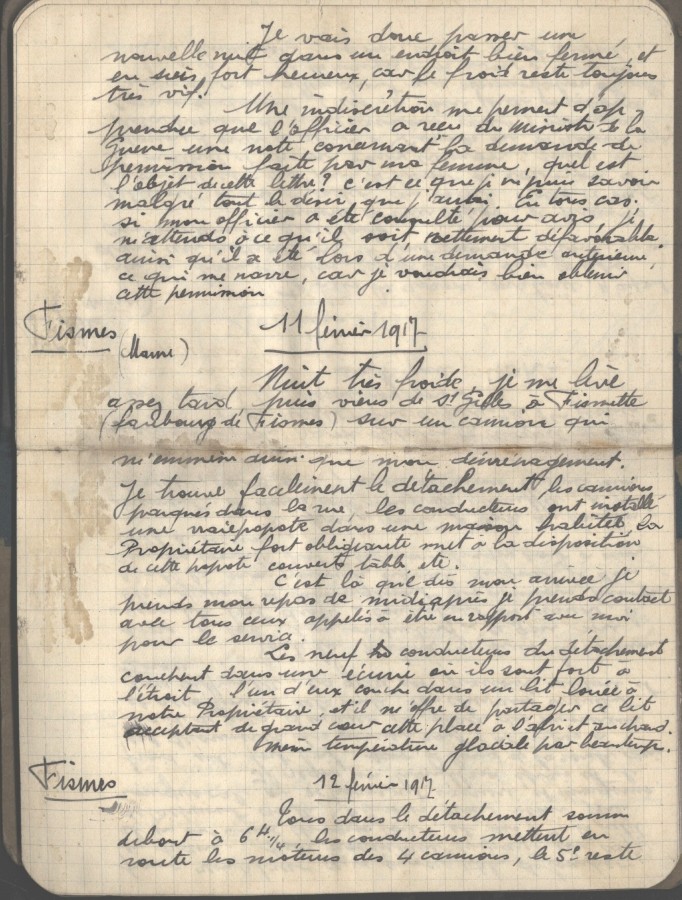 Je vais donc passer une
nouvelle nuit dans un endroit bien fermé et
en suis fort heureux, car le froid reste toujours
très vif.
Une indiscrétion me permet d'ap-
prendre que l'officier a reçu du Ministre de la
Guerre une note concernant la demande de
permission faite par ma femme, quel est
l'objet de cette lettre? c'est ce que je ne puis savoir
malgré tout le désir que j'aurai. En tous cas
si mon officier a été consulté pour avis, je
m'attends à ce qu'il soit nettement défavorable
ainsi qu'il a été lors d'une demande antérieure,
ce qui me navre, car je voudrais bien obtenir
cette permission
Fismes 11 février 1917
(Marne)
Nuit très froide, je me lève
assez tard, puis viens de St Gilles à Fismette
(faubourg de Fismes) sur un camion qui
m'emmène ainsi que mon déménagement.
Je trouve facilement le détachement, les camions
parqués dans la rue, les conducteurs ont installé
une vraie popote dans une maison habitée la
Propriétaire fort obligeante met à la disposition
de cette popote couverts table etc.
C'est là que dès mon arrivée je
prends mon repas de midi après je prends contact
avec tous ceux appelés à être en rapport avec moi
pour le service.
Les neuf conducteurs du détachement
couchent dans une écurie où ils sont fort à
l'étroit l'un d'eux couche dans un lit louée à
notre Propriétaire, et il m'offre de partager ce lit
acceptant de grand cœur cette place à l'abri et au chaud.
même température glaciale par beau temps.
Fismes 12 février 1917
Tous dans le détachement sommes
debout à 6H 1/4, les conducteurs mettent en
route les moteurs des 4 camions, le 5e reste